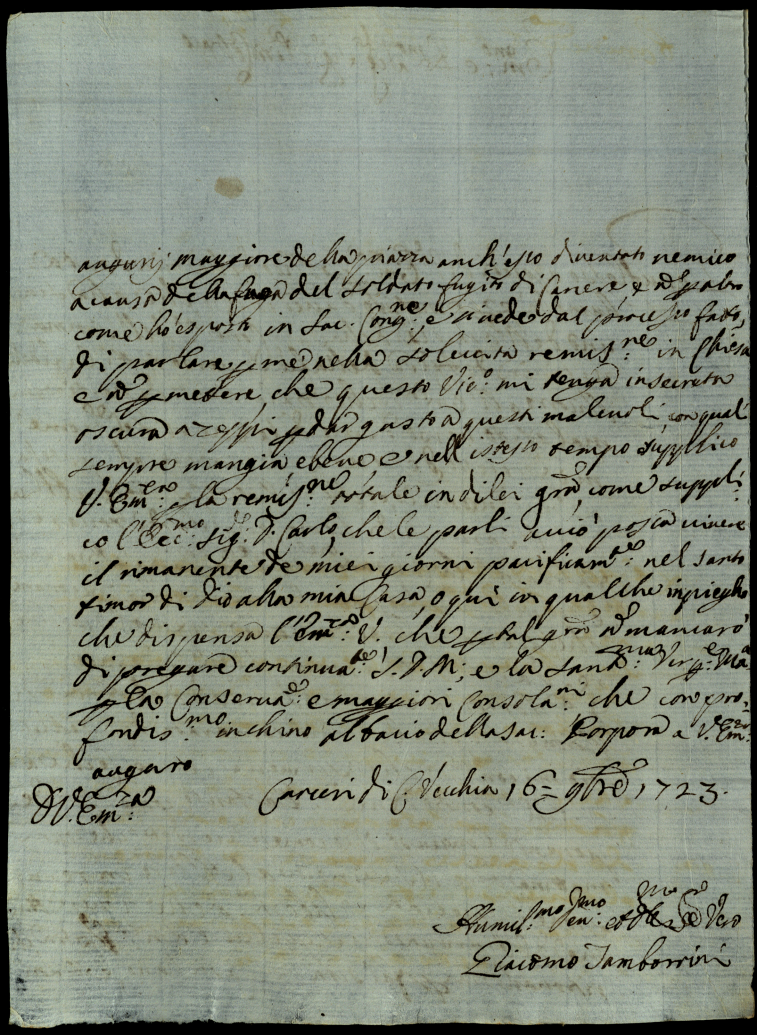 auguri, maggiore della piazza anch'esso diventato nemico
a causa della fuga del soldato fugito di Carcere e
come hò esposto in Sac. Cong.ne, e si vede dal processo fatto,
di parlare p me nella sollecita remis.ne in Chiesa
e p mettere, che questo Vic.o mi tenga in secreta
oscura a ceppi p dar gusto a questi malevoli con quali
sempre mangia e beve e nell istesso tempo supplico
V. Em.za p la remis.ne totale in di lei gra, come suppli
co l'Ecc.mo Sig. D. Carlo, che le parli acciò possa vivere
il rimanente de miei giorni pacificam.te nel santo
timor di Dio alla mia Casa, o qui in qualche inpiegho
che dispensa l'Em.za V. che p tal gra mancarò
di pregare continua.te S. D. M; e la Sant.ma Verg.e Ma
p la Conserva.e e maggiori Consola.ni che con pro=
fondis.mo inchino al bacio della Sac: Porpora a V. Em.za
auguro
D V. Em.za
Carceri di C. Vecchia 16 9bre 1723.
Humil.mo
Giacomo Tamborrini